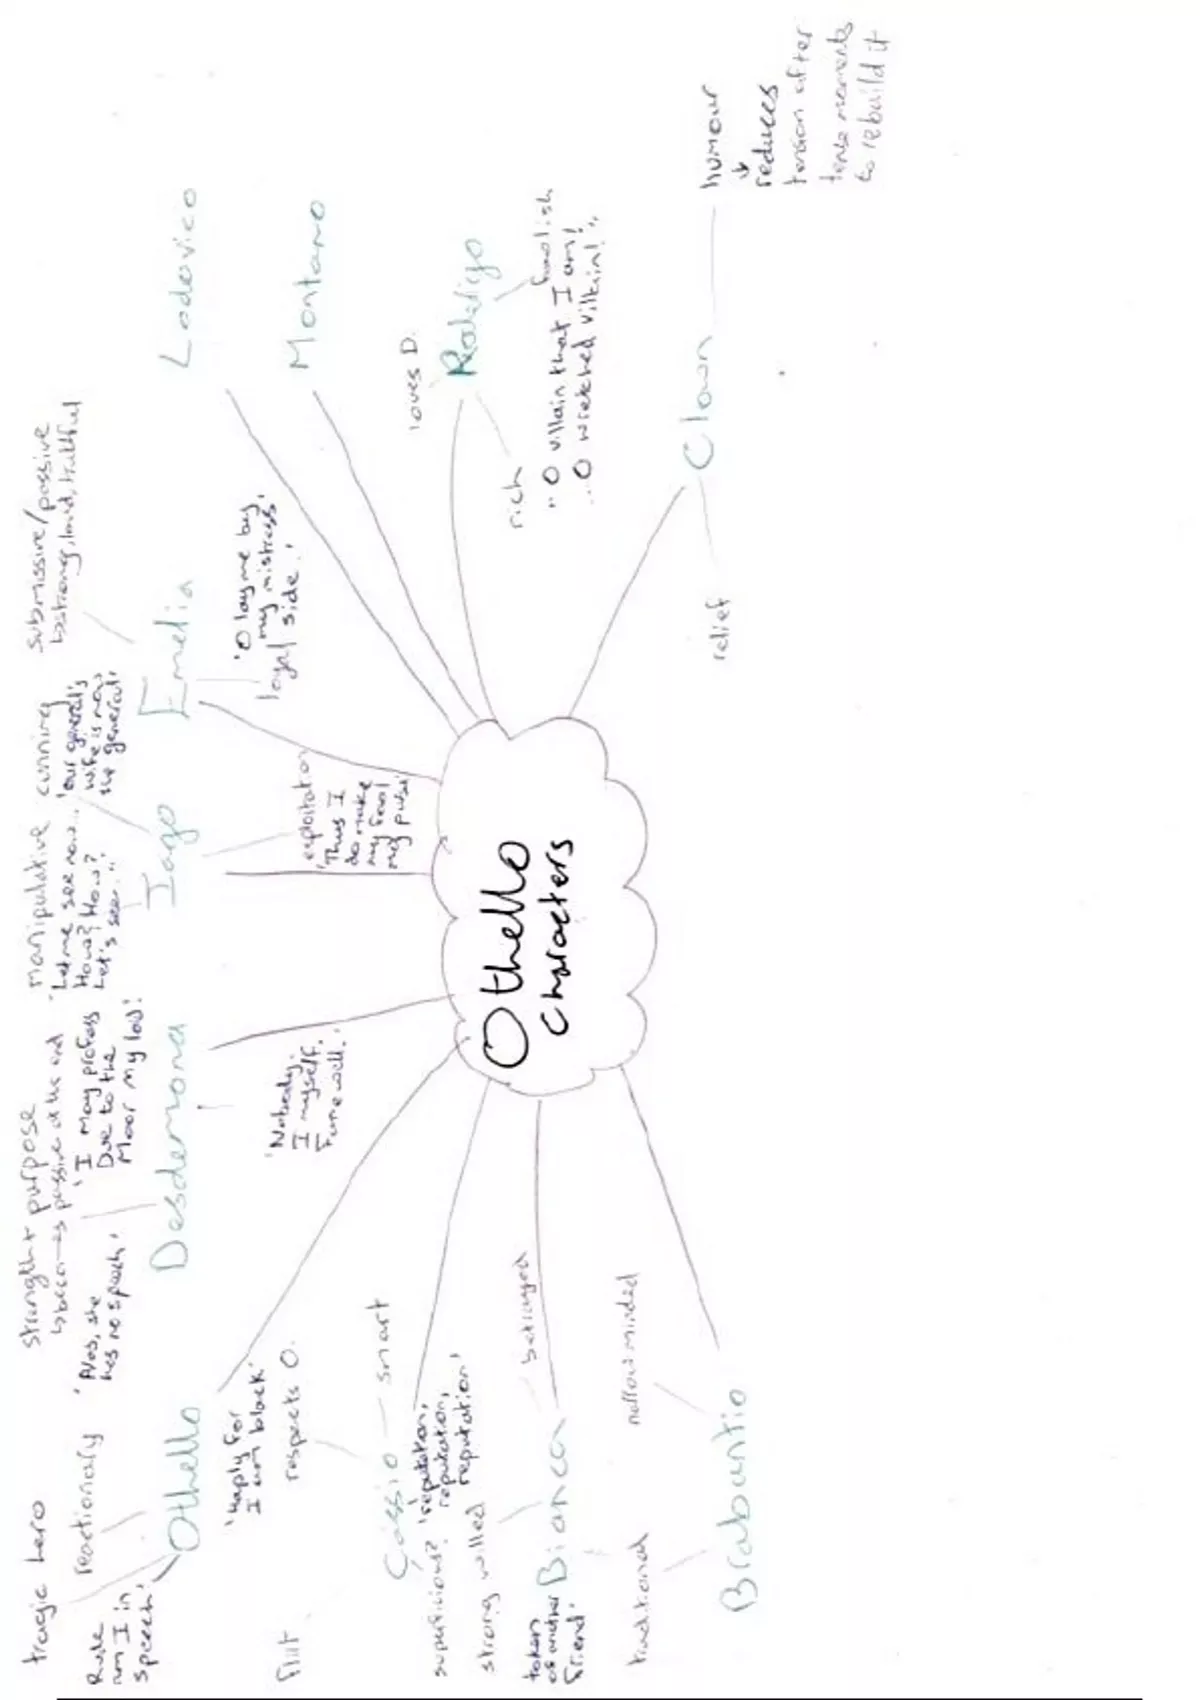 Othello
Characters
tragic hero
reactionary
Othello
Rude
am I in
speech'
'Haply for
I am black'
strength + purpose
becomes passive at the end
'Alas, she
has no speech'
'I may profess
Due to the
Moor my lord'
Desdemona
'Nobody.
I myself.
Farewell.'
manipulative
cunning
'Let me see now...
How? How?
Let's see..'
'our general's
wife is now
the general'
Iago
exploitation
'Thus I
do make
my fool
my purse'
submissive/passive
Emelia
'O lay me by
my mistress
side.'
loyal
Lodovico
Montano
loves D.
Rodrigo
foolish
rich
"O villain that I am!
"O wretched villain!"
Clown
humour
reduces
tension after
tense moments
to rebuild it
relief
respects O.
smart
Cassio
flirt
superficious? 'reputation,
reputation,
reputation!'
betrayed
strong willed
Bianca
token
of another
friend'
narrow minded
traditional
Brabantio